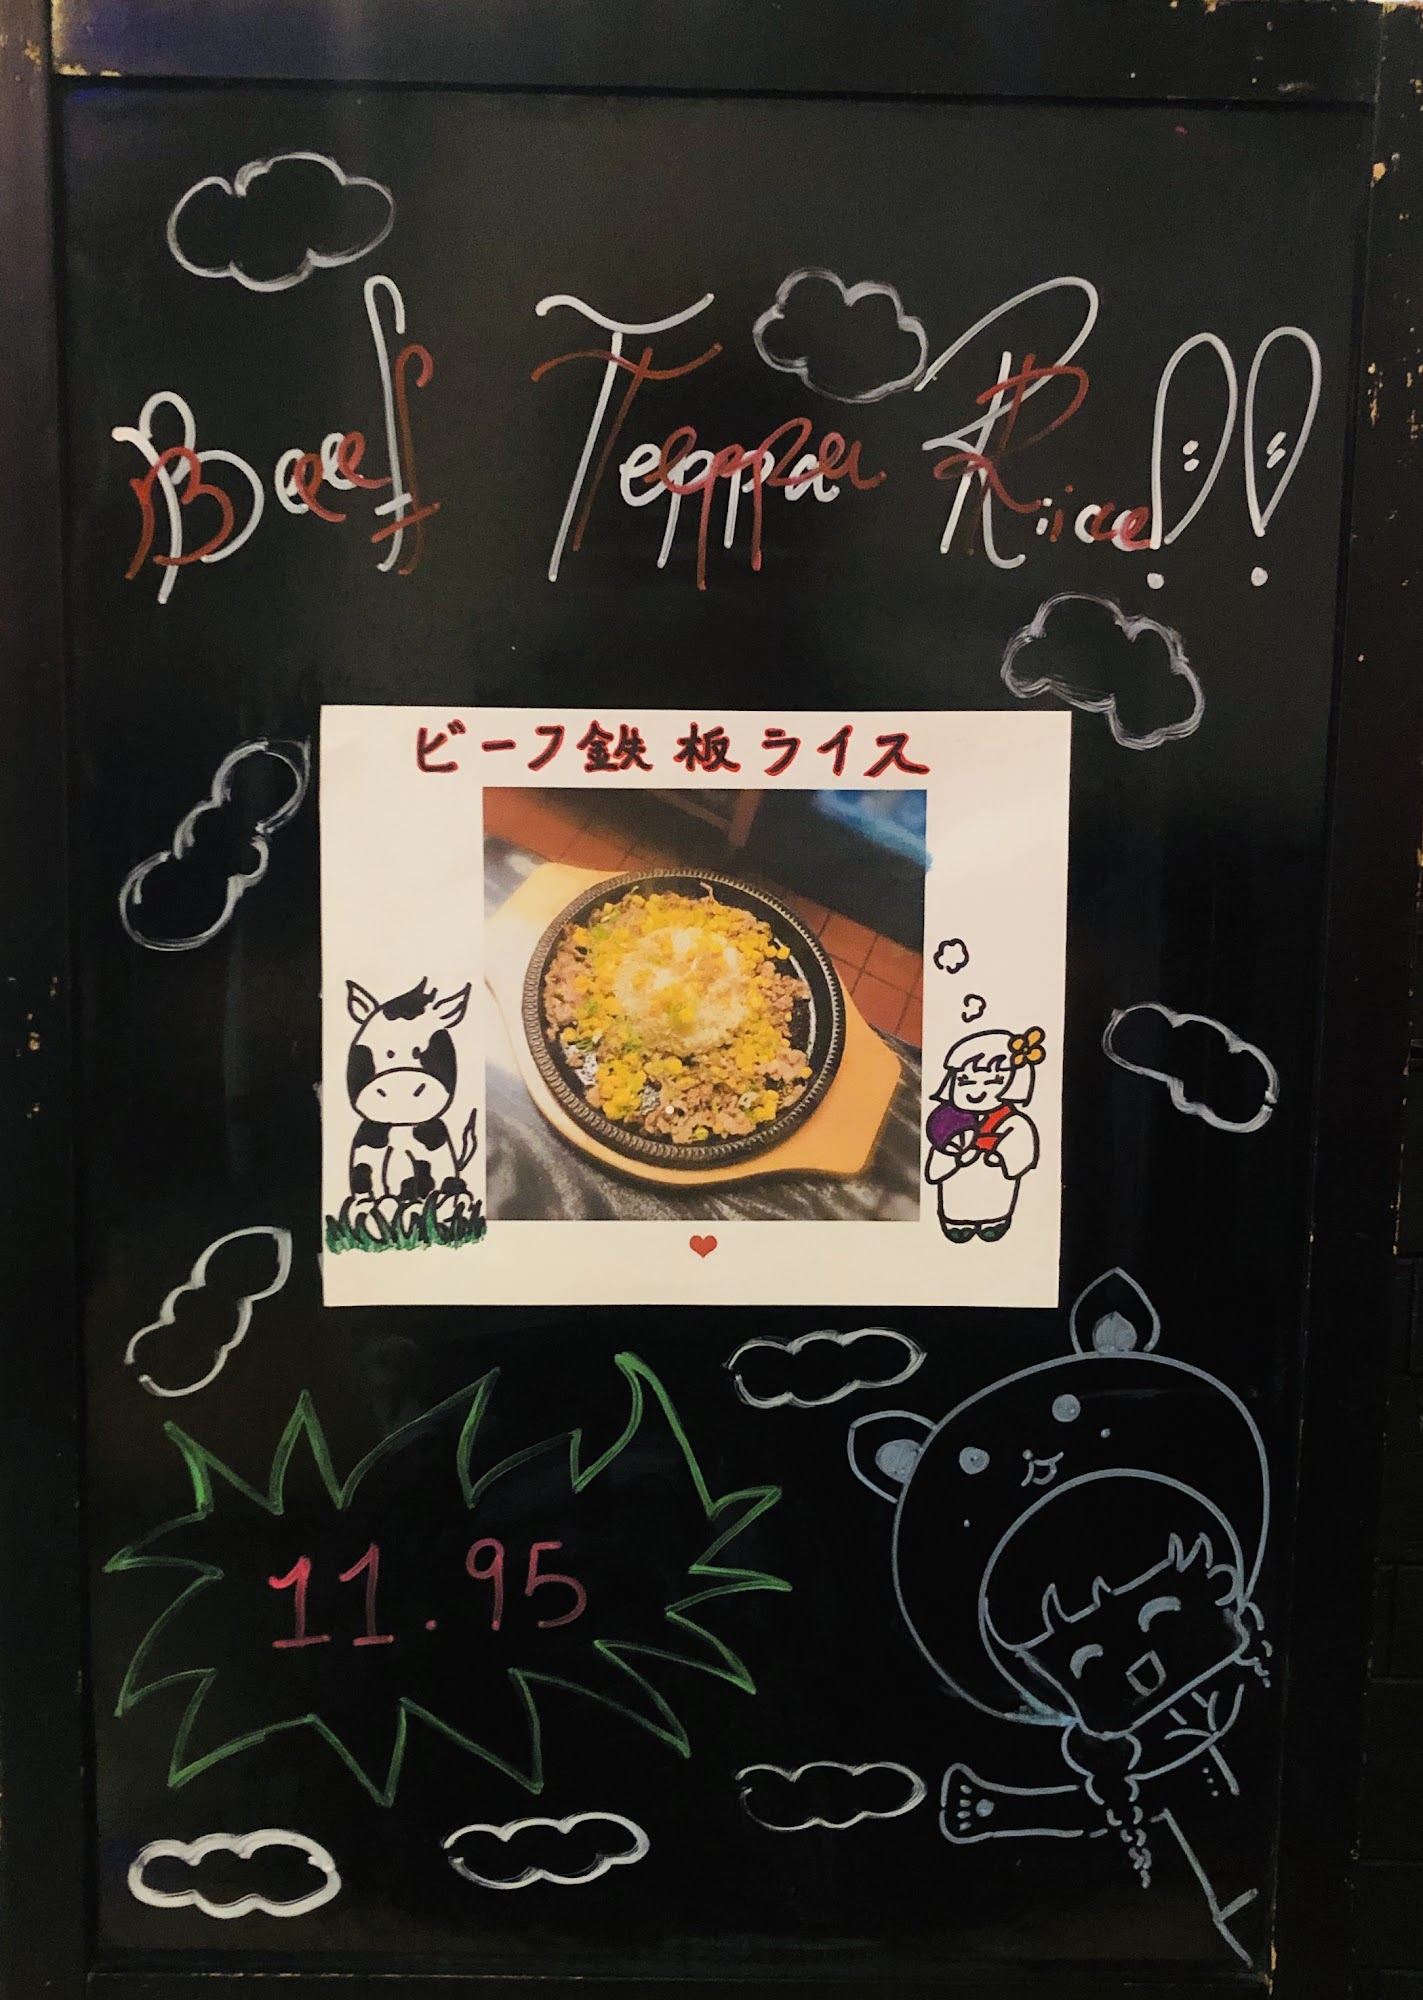 Beef Teppa Rice!!
ビーフ鉄板ライス
11.95